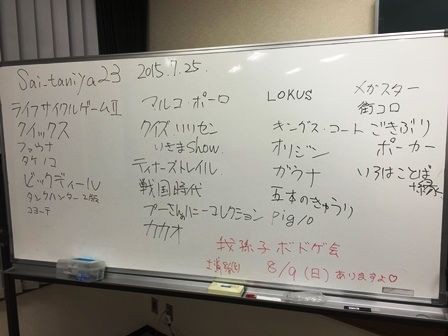 Sai-taniya23 2015.7.25.
ライフサイクルゲームⅡ
クイックス
ファウナ
タケノコ
ビックディール
タンクハンター2版
コヨーテ
マルコ・ポーロ
クイズいいセン
いきまShow.
ティナーズトレイル
戦国時代
プーさんハニーコレクション
カカオ
LOKUS
キングス・コート
オリジン
ガウナ
五本のきゅうり
pig10
メガスター
街コロ
ごきぶり
ポーカー
いろはことば
我孫子ボドゲ会
8/9(日)ありますよ♡